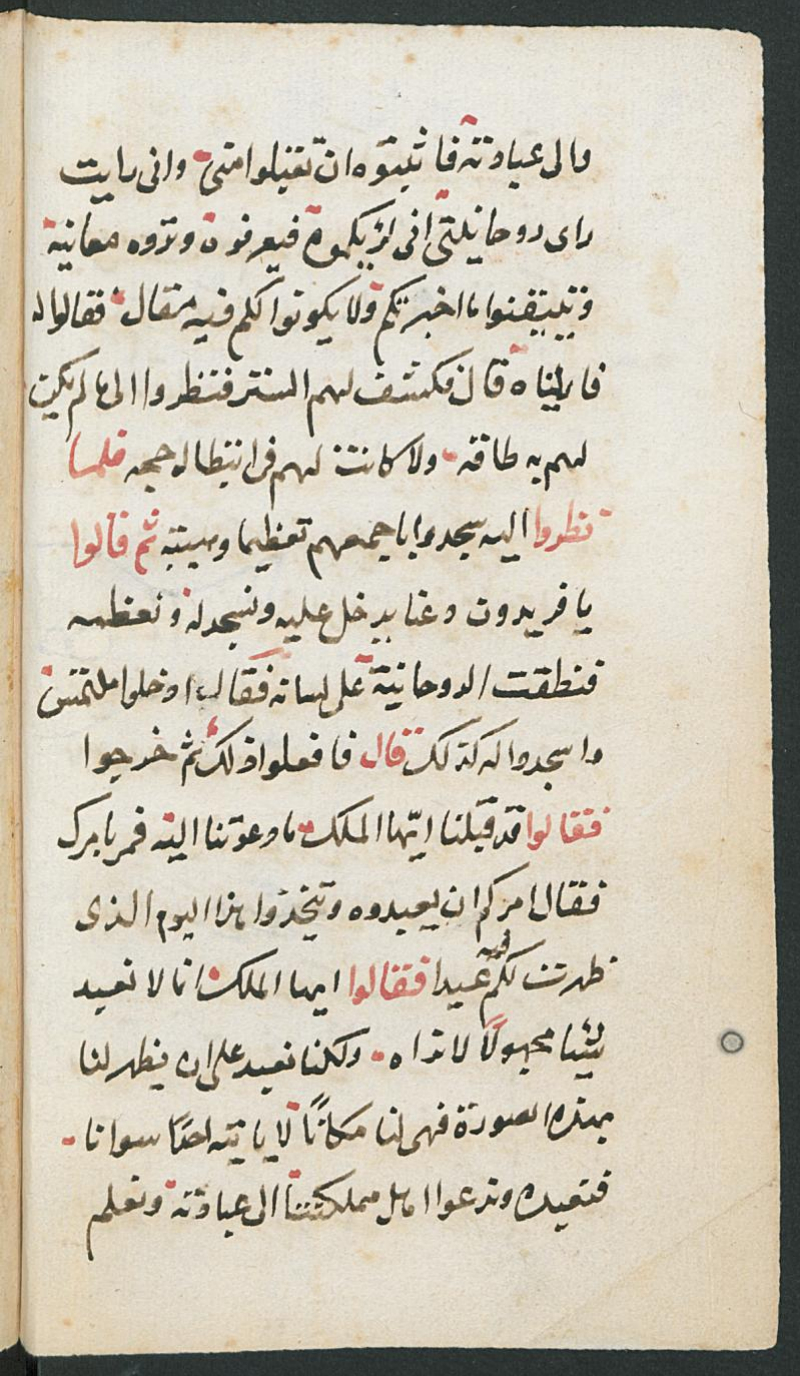 والى عبادته فاثبتوه ان تقبلوا منى وانى رايت
راى روحانيتى انى اريكموه فيعرفوه وتروه معاينة
وتيقنوا ما اخبرتكم ولا يكونوا لكم فيه مقال فقالوا له
فارايناه قال فكشف لهم الستر فنظروا الى ما لم يكن
لهم به طاقة ولا كانت لهم فى ابطال حجه فلما
نظروا اليه سجدوا باجمعهم تعظيما وهيبته ثم قالوا
يا فريدون دعنا يدخل عليه ونسجد له ونعظمه
فنطقت الروحانية على لسانه فقال ادخلوا ملتمين
واسجدوا له كذلك قال فافعلوا ذلك ثم خرجوا
فقالوا قد قبلنا ايها الملك ما دعوتنا اليه فمر بامرك
فقال امركم ان يعبدوه وتتخذوا هذا اليوم الذى
ظهرت لكم فيه عيدا فقالوا ايها الملك انا لا نعبد
شيئا مجهولا لا نراه ولكنا نعبد على ان يظهر لنا
بهذه الصورة فهى لنا مكانا لا ياتيه احدا سوانا
فنعبده وندعوا اهل مملكتنا الى عبادته ونعلم